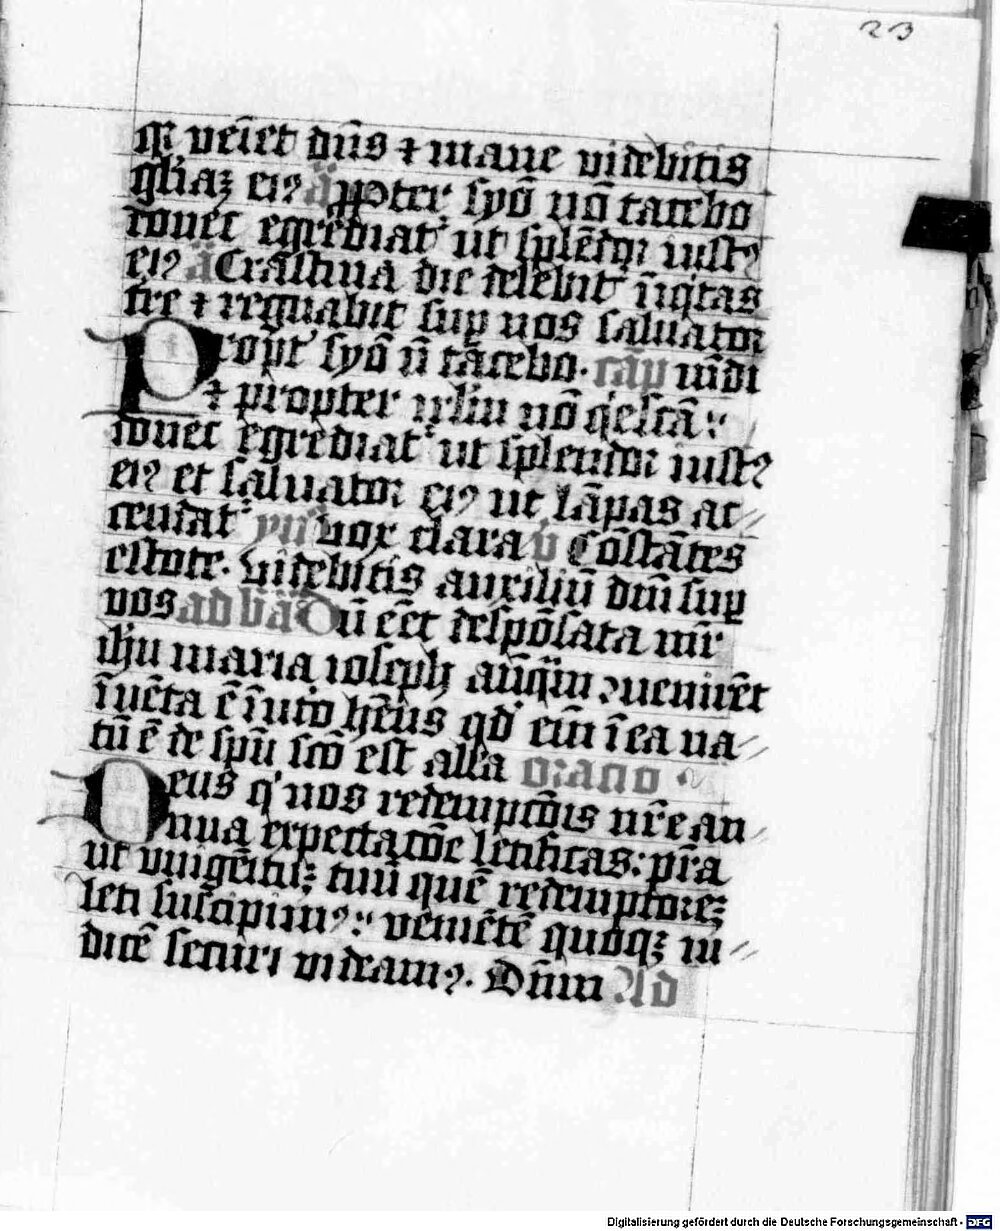 23
qr̄ veīet dn̄s ⁊ mane videbitis
gl̄iaꝫ eiꝰ ā ꝓpter syō nō tacebo
donec egrediat᷑ ut splēdor iustꝰ
eiꝰ ā Crastina die delebit᷑ īiqtas
tre ⁊ regnabit sup̱ nos saluator
Propt᷑ syō n̄ tacebo. cāp mūdi
⁊ propter irl̄m nō q̇escā:
donec egrediat᷑ ut splendor iustꝰ
eiꝰ et saluator eiꝰ ut lāpas ac//
cendat᷑ ym̄ vox clara v̄ Cōstātes
estote. videbitis auxiliū dn̄i sup̱
vos ad bn̄ā Cū eēt despōsata mr̄
ih̄u maria ioseph an̄q̄m ꝯuenirēt
īuēta ē ī uto hēns qd̓ eīm ī ea na//
tū ē de spū scō est alla oracio
Deus q̇ nos redempcōis nr̄e an//
nua expectacōe letificas: pr̄a
ut vnigēitūꝫ tuū quē redemptoreꝫ
leti suscipimꝰ: venietē quoqꝫ iu//
dicē securi videamꝰ. Dn̄m Ad
Digitalisierung gefördert durch die Deutsche Forschungsgemeinschaft - DFG